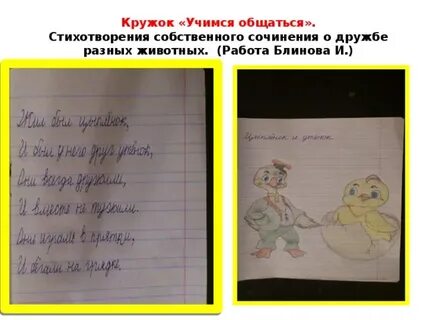 Кружок «Учимся общаться».
Стихотворения собственного сочинения о дружбе
разных животных. (Работа Блинова И.)
Жил был цыплёнок,
И был у него друг утёнок,
Они всегда дружили,
И вместе не тужили.
Они играли в прятки,
И бегали на грядке.
Цыплёнок и утёнок.